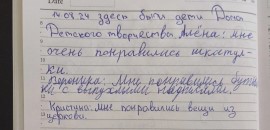 14.09.24 здесь были дети Дома
Детского творчества. Алёна: мне
очень понравились шкатул-
ки.
Вероника: Мне понравились бутыл
ки с выпуклыми надписями.
Кристина: Мне понравились вещи из
церкви.